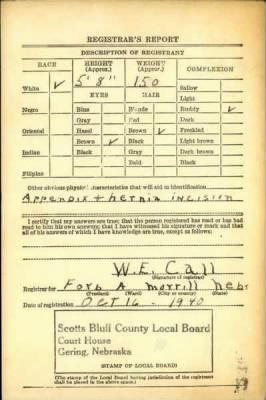 REGISTRAR'S REPORT
DESCRIPTION OF REGISTRANT
RACE HEIGHT (Approx.) WEIGHT (Approx.) COMPLEXION
White ✓ 5' 8" 150 Sallow
EYES HAIR Light
Negro Blue Blonde Ruddy ✓
Gray Red Dark
Oriental Hazel Brown ✓ Freckled
Brown ✓ Black Light brown
Indian Black Gray Dark brown
Bald Black
Filipino
Other obvious physical characteristics that will aid in identification
Appendix + hernia incision
I certify that my answers are true; that the person registered has read or has had
read to him his own answers; that I have witnessed his signature or mark and that
all of his answers of which I have knowledge are true, except as follows:
W. E. Call
(Signature of registrar)
Registrar for A Morrill Nebr
(Precinct) (Ward) (City or county) (State)
Date of registration Oct 16 - 1940
Scotts Bluff County Local Board
Court House
Gering, Nebraska
STAMP OF LOCAL BOARD)
(The stamp of the Local Board having jurisdiction of the registrant
shall be placed in the above space.)